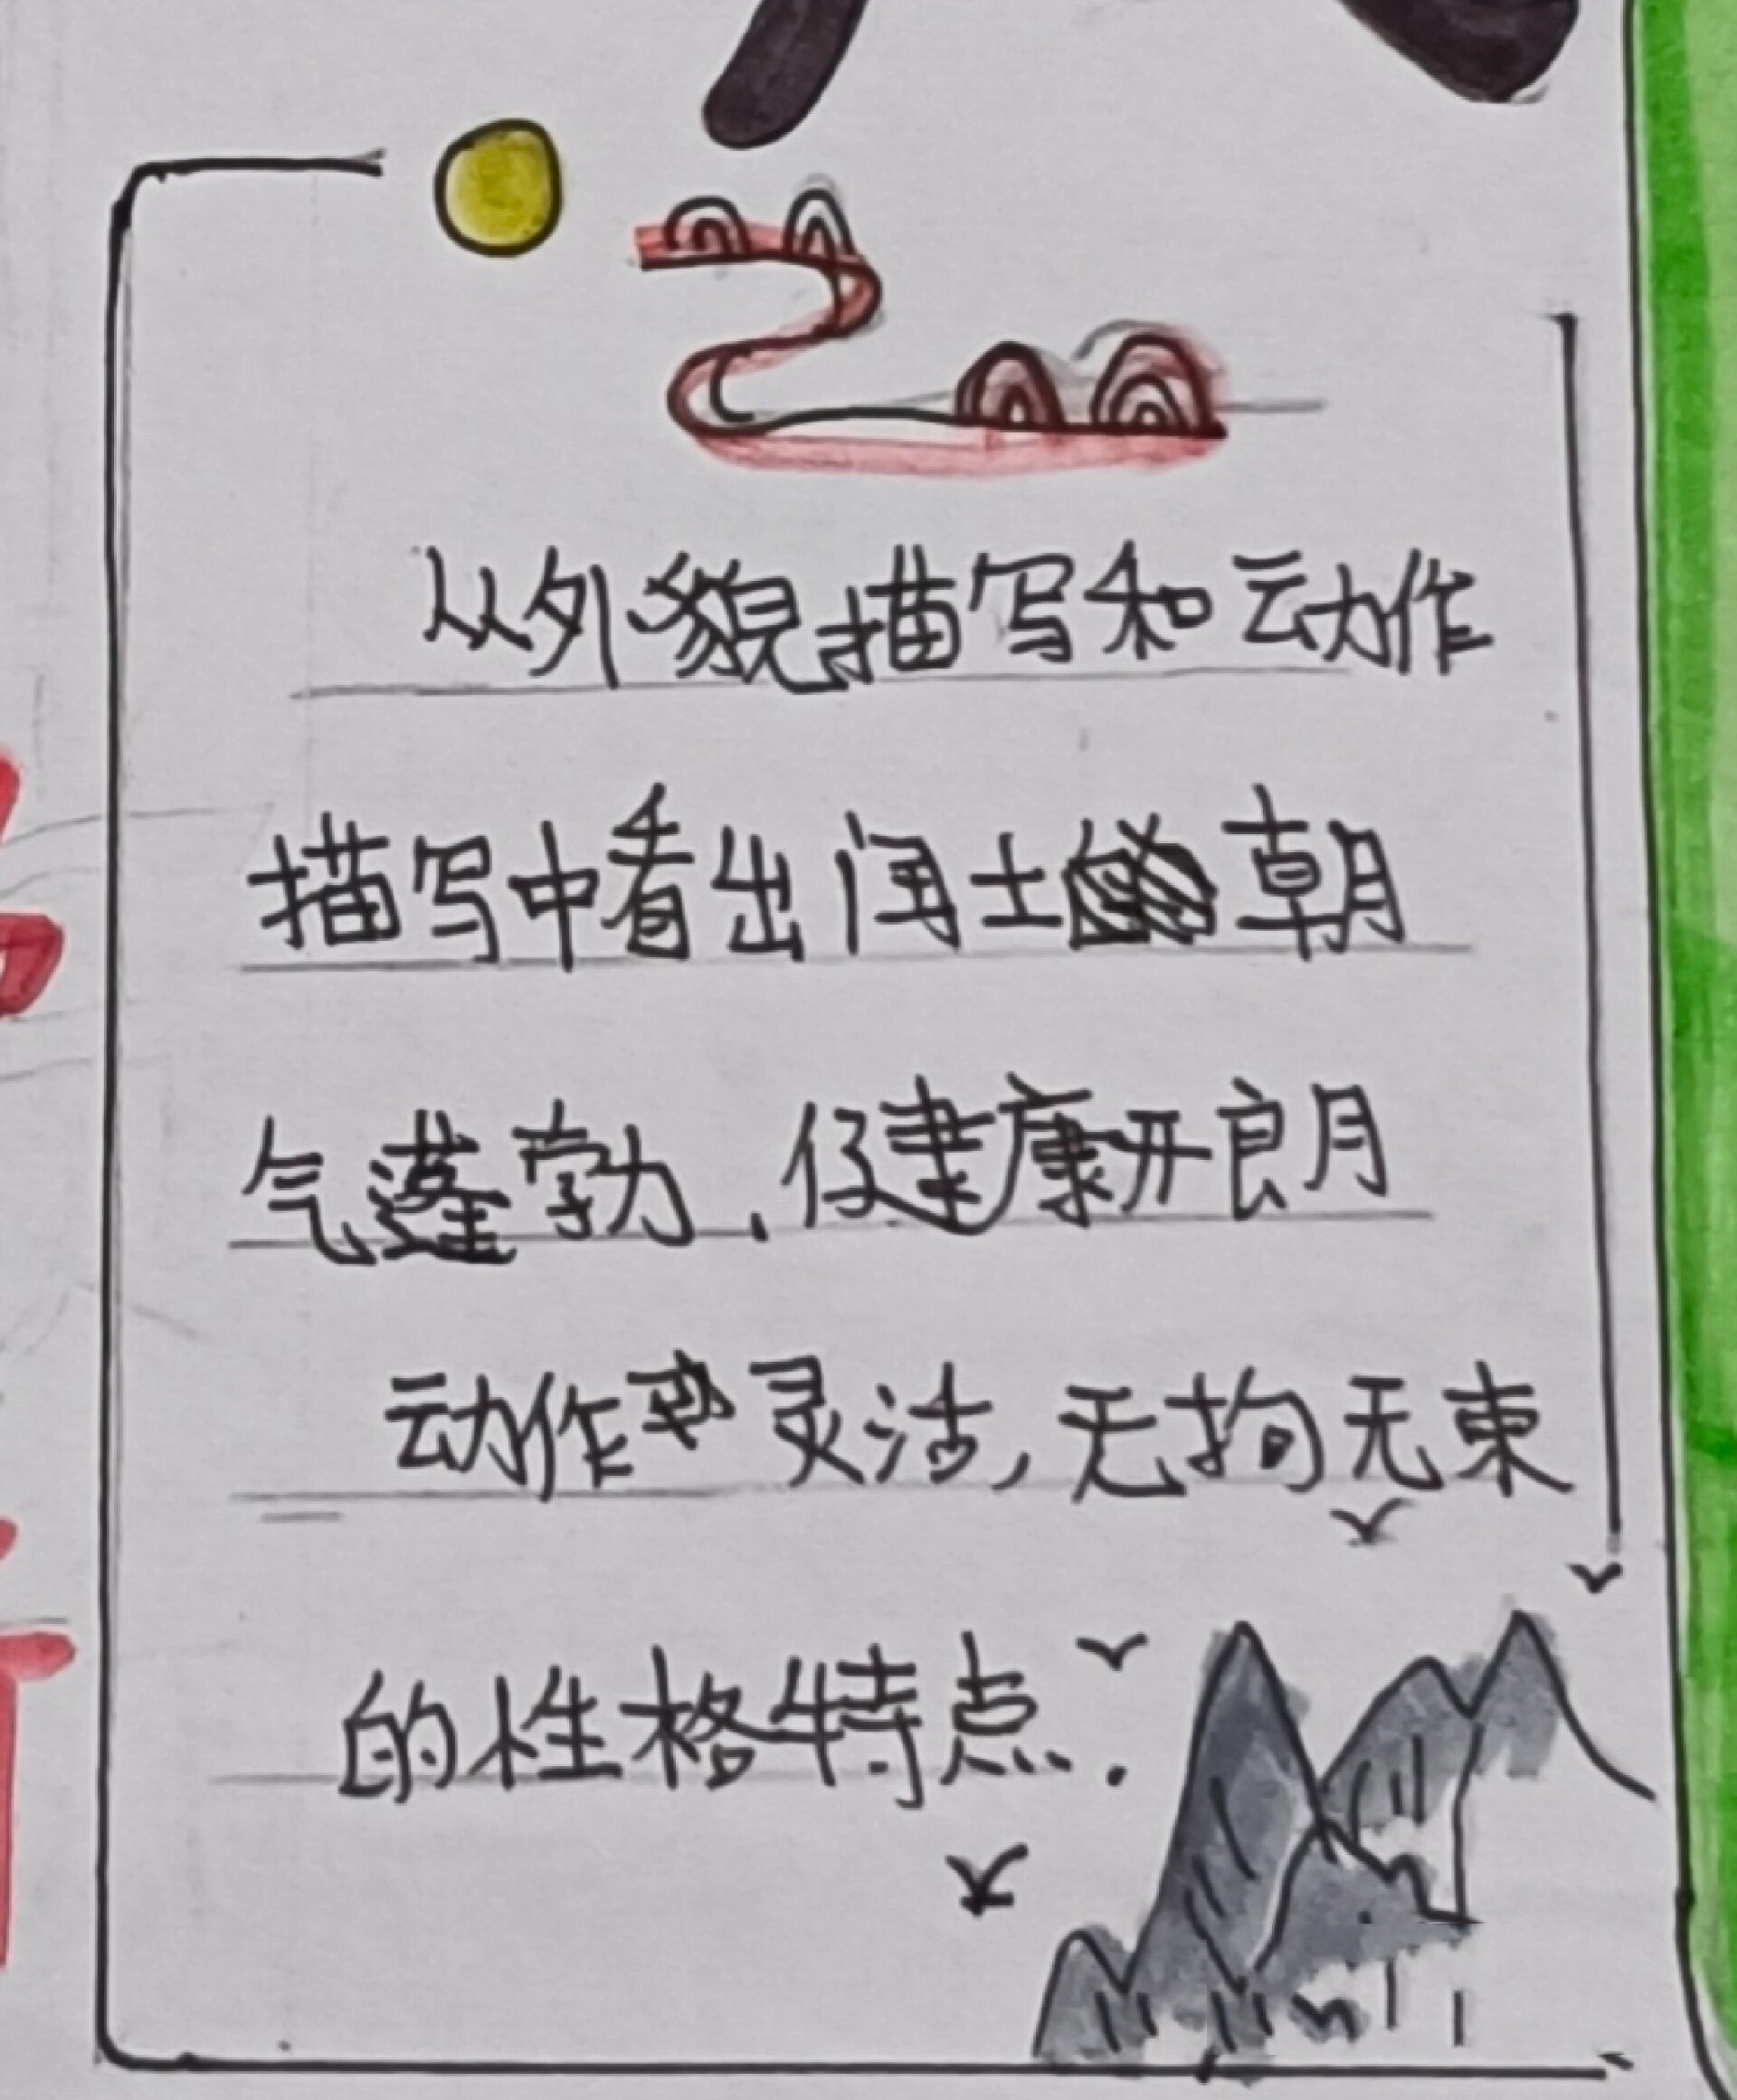 从外貌描写和动作
描写中看出闰土朝
气蓬勃、健康开朗
动作灵活,无拘无束
的性格特点.